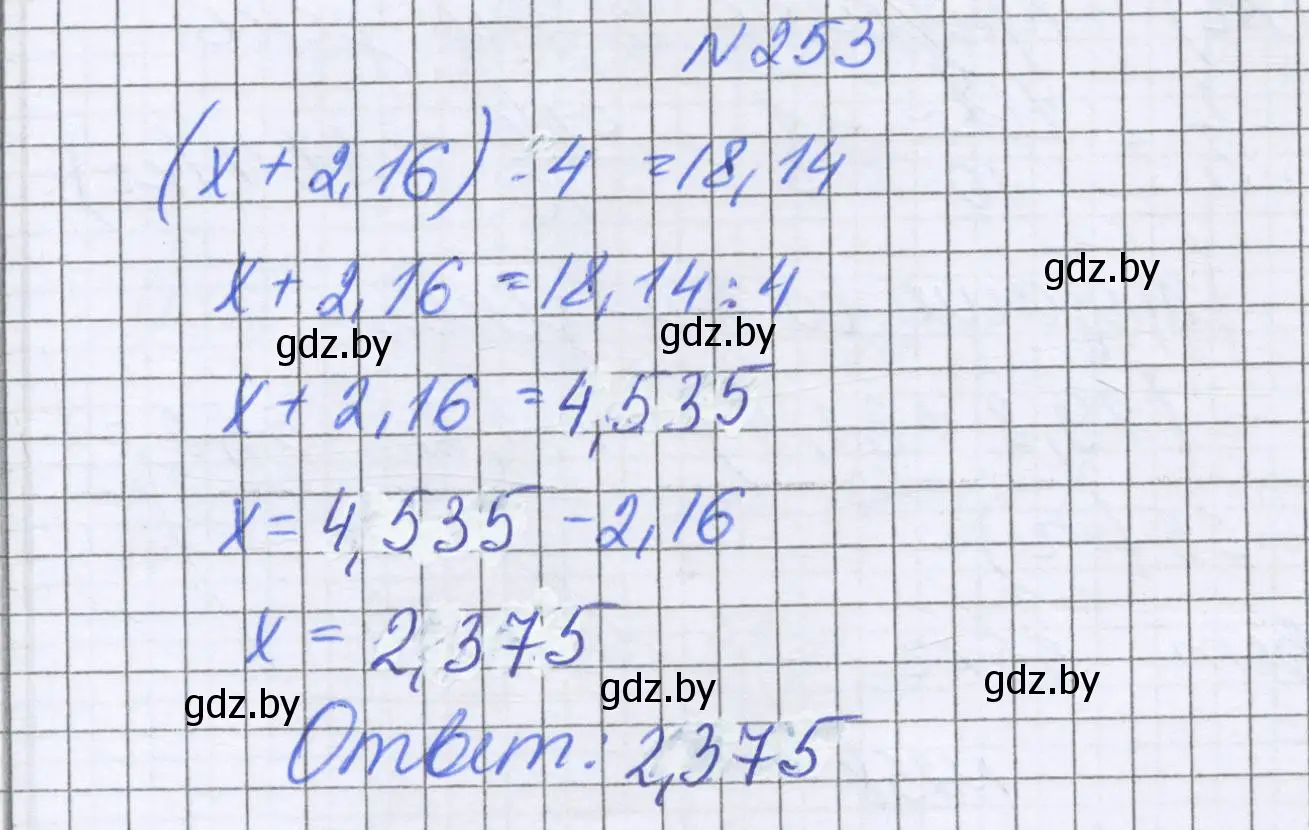 N253
(x + 2,16) · 4 = 18,14
x + 2,16 = 18,14 : 4
gdz.by
gdz.by
gdz.by
x + 2,16 = 4,535
x = 4,535 - 2,16
x = 2,375
gdz.by
gdz.by
gdz.by
Ответ: 2,375